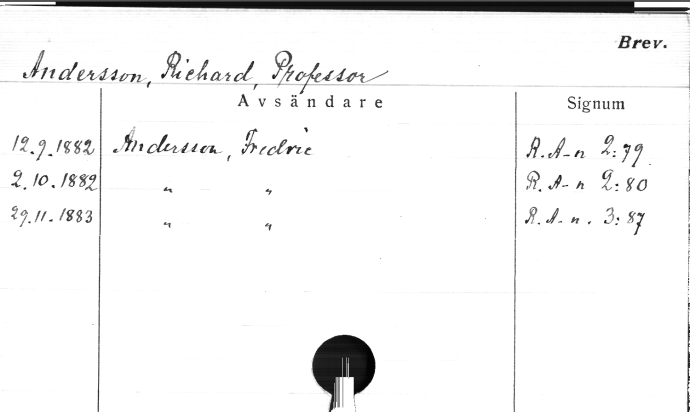 Brev.
Andersson, Richard, Professor
Avsändare Signum
12.9.1882 Andersson, Fredric R. A-n 2:79
2.10.1882 " " R. A-n 2:80
29.11.1883 " " R. A-n. 3:87